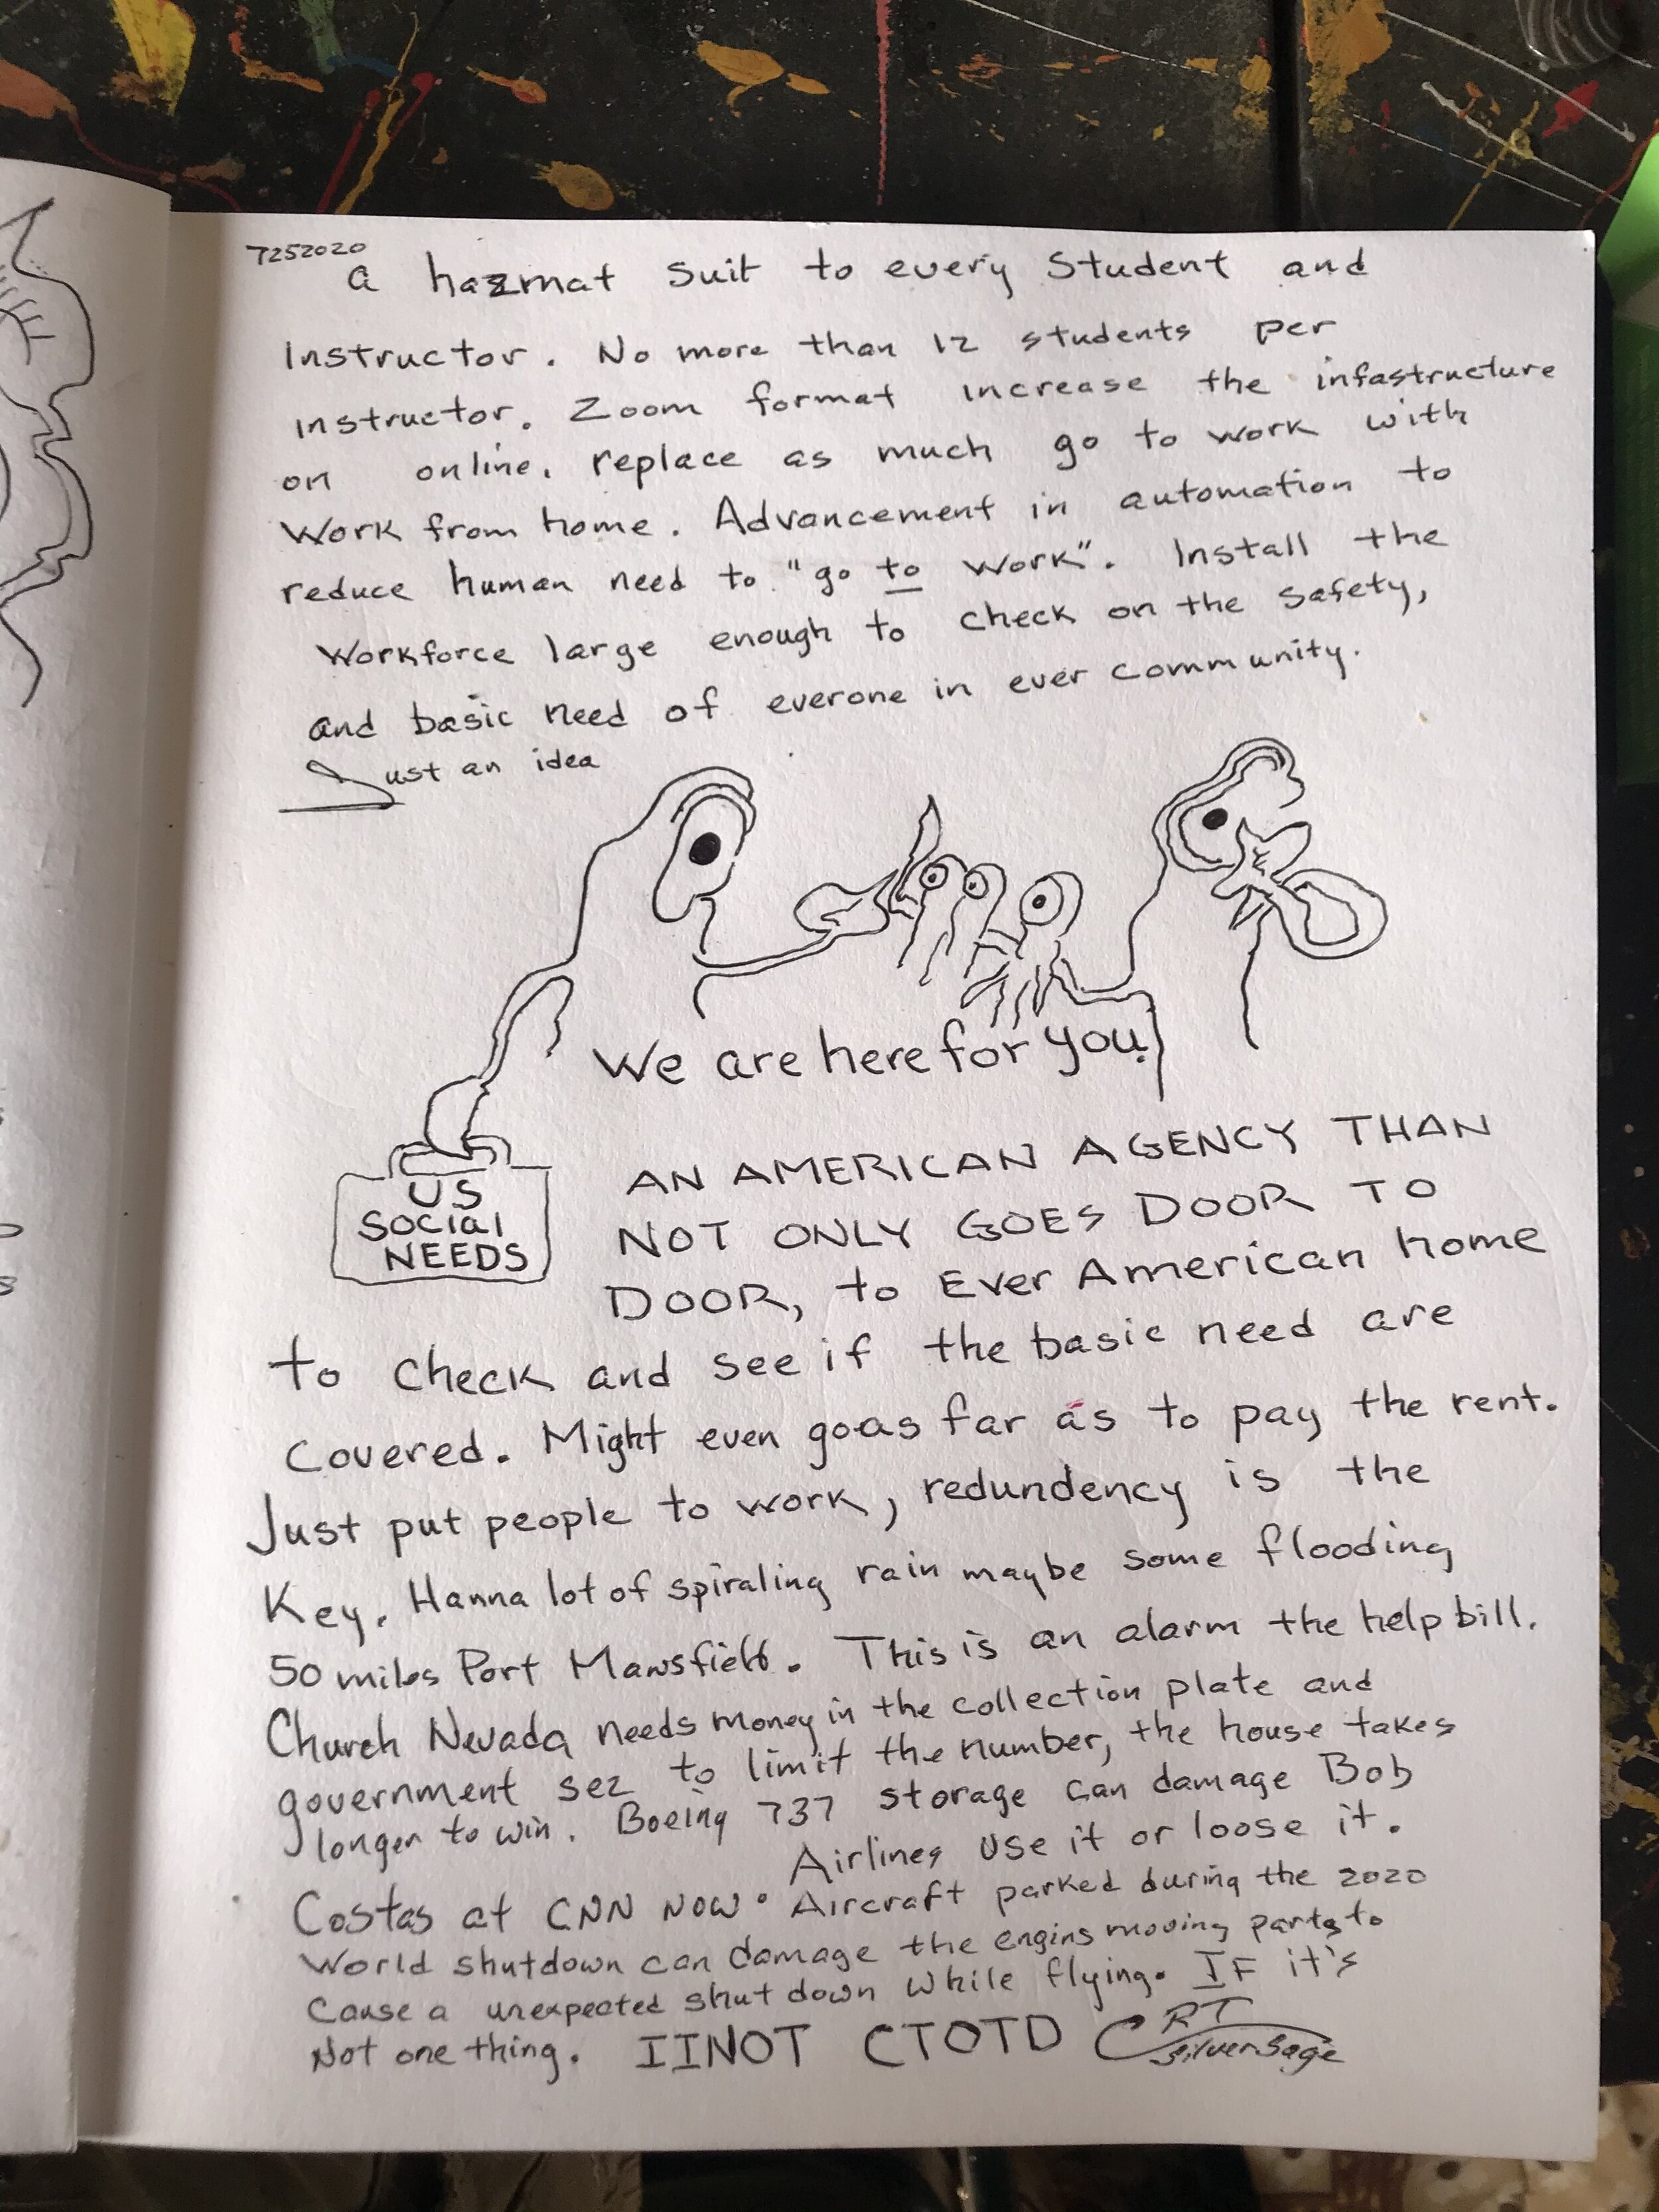 7252020
a hazmat suit to every student and
Instructor. No more than 12 students per
instructor. Zoom format increase the infastructure
on online. replace as much go to work with
work from home. Advancement in automation to
reduce human need to "go to work". Install the
workforce large enough to check on the safety,
and basic need of everone in ever community.
Just an idea
We are here for you!
US
Social
NEEDS
AN AMERICAN AGENCY THAN
NOT ONLY GOES DOOR TO
DOOR, to Ever American home
to check and see if the basic need are
Covered. Might even go as far as to pay the rent.
Just put people to work, redundency is the
Key. Hanna lot of spiraling rain maybe some flooding
50 miles Port Mansfield. This is an alarm the help bill.
Church Nevada needs money in the collection plate and
government sez to limit the number, the house takes
longer to win. Boeing 737 storage can damage Bob
Airlines use it or loose it.
Costas at CNN NOW. Aircraft parked during the 2020
World shutdown can damage the engins moving parts to
Cause a unexpected shut down while flying. IF it's
Not one thing. IINOT CTOTD RT
SilverSage